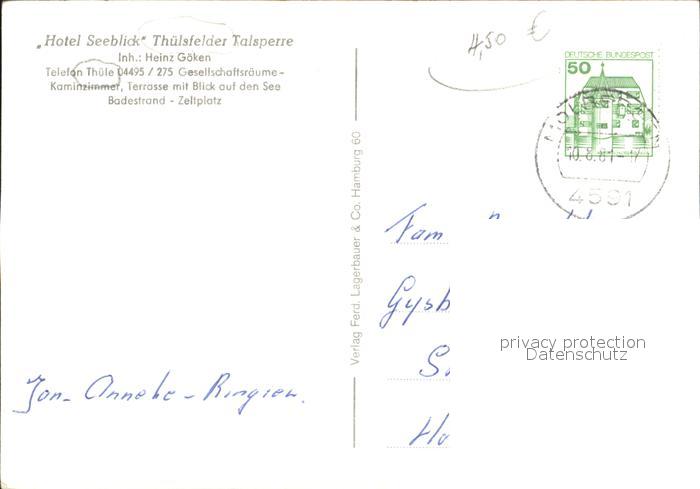 „Hotel Seeblick“ Thülsfelder Talsperre
Inh.: Heinz Göken
Telefon Thüle 04495 / 275 Gesellschaftsräume -
Kaminzimmer, Terrasse mit Blick auf den See
Badestrand - Zeltplatz
Jon - Anneke - Ringien.
Verlag Ferd. Lagerbauer & Co. Hamburg 60
4,50 €
DEUTSCHE BUNDESPOST
50
10.8.81-17
4591
Fam
Gysb
S.
Ho
privacy protection
Datenschutz